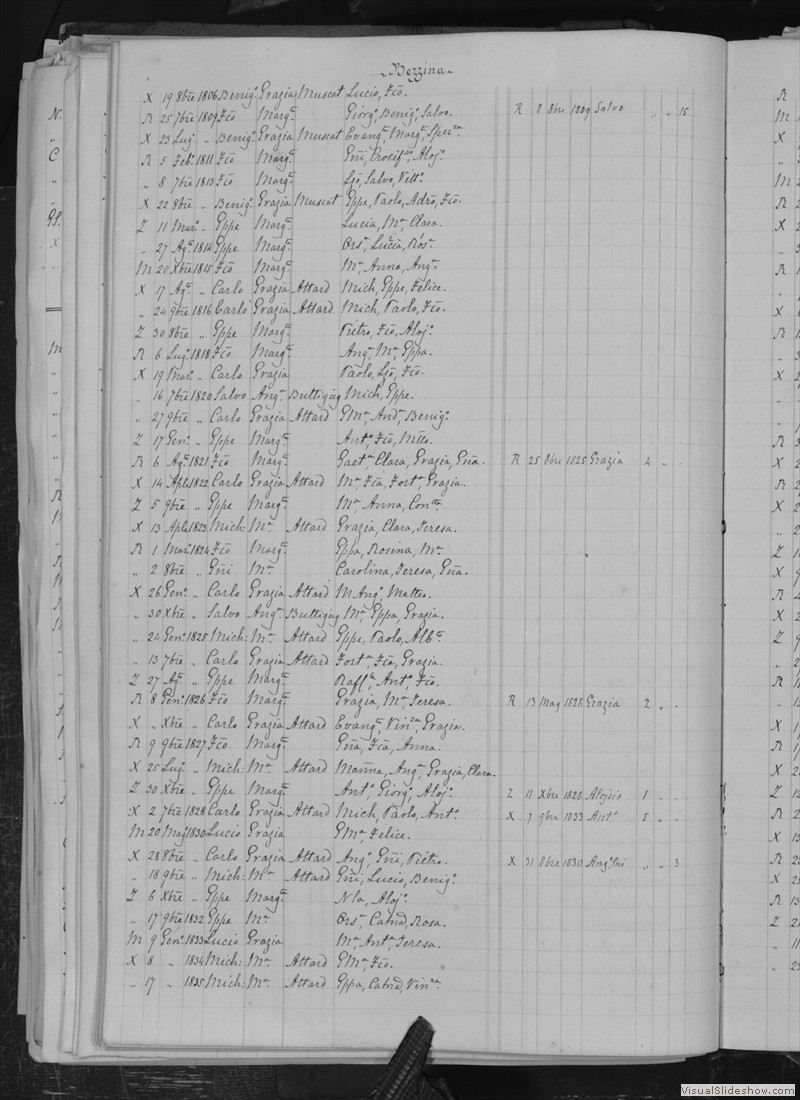 Bezzina
X 19 8bre 1806 Benig.o Grazia Muscat Lucio, Fco.
R 25 7bre 1809 Fco Marg.ta Giorg.o Benig.o Salvo. R 8 8bre 1809 Salvo „ „ 15
X 23 Lug.o „ Benig.o Grazia Muscat Evang.ta Marg.ta Sper.za
R 5 Feb.o 1811 Fco Marg.ta Gñi, Crocif.so, Aloj.o
„ 8 7bre 1813 Fco Marg.ta Ljo, Salvo, Vitt.o
X 22 8bre „ Benig.o Grazia Muscat Gppe, Paolo, Adro, Fco.
Z 11 Mar.o „ Gppe Marg.ta Lucia, M.a Clara.
„ 27 Ag.o 1814 Gppe Marg.ta Ors.a Lucia, Ros.a
M 20 Xbre 1815 Fco Marg.ta M.a Anna, Ang.a
X 17 Ag.o „ Carlo Grazia Attard Mich, Gppe, Felice.
„ 24 9bre 1816 Carlo Grazia Attard Mich, Paolo, Fco.
Z 30 8bre „ Gppe Marg.ta Pietro, Fco, Aloj.o
R 6 Lug.o 1818 Fco Marg.ta Ang.a M.a Gppa.
X 19 Mar.o „ Carlo Grazia Paolo, Ljo, Fco.
„ 16 7bre 1820 Salvo Ang.a Buttigieg Mich, Gppe.
„ 27 9bre „ Carlo Grazia Attard GM.a And.a Benig.o
Z 17 Gen.o „ Gppe Marg.ta Ant.o Fco, Mtteo.
R 6 Ag.o 1821 Fco Marg.ta Gaet.a Clara, Grazia, Gña. R 25 8bre 1825 Grazia 4 „ „
X 14 Aple 1822 Carlo Grazia Attard M.a Fca, Fort.a Grazia.
Z 5 9bre „ Gppe Marg.ta M.a Anna, Con.tta
X 13 Aple 1823 Mich: M.a Attard Grazia, Clara, Teresa.
R 1 Mar.o 1824 Fco Marg.ta Gppa, Rosina, M.a
„ 2 8bre „ Gñi M.a Carolina, Teresa, Gña.
X 26 Gen.o „ Carlo Grazia Attard M Ang.o Matteo.
„ 30 Xbre „ Salvo Ang.a Buttigieg M.a Gppa, Grazia.
„ 24 Gen.o 1825 Mich: M.a Attard Gppe, Paolo, Alb.to
„ 13 7bre „ Carlo Grazia Attard Fort.a Fca, Grazia.
Z 27 Ag.o „ Gppe Marg.ta Raff.le Ant.o Fco.
R 8 Gen.o 1826 Fco Marg.ta Grazia, M.a Teresa. R 13 Mag 1828 Grazia 2 „ „
X „ Xbre „ Carlo Grazia Attard Evang.ta Vin.za Grazia.
R 9 9bre 1827 Fco Marg.ta Gña, Fca, Anna.
X 25 Lug.o „ Mich: M.a Attard Marña, Ang.a Grazia, Clara.
Z 30 Xbre „ Gppe Marg.ta Ant.o Giorg.o Aloj.o Z 11 Xbre 1828 Alojsio 1 „ „
X 2 7bre 1828 Carlo Grazia Attard Mich, Paolo, Ant.o X 7 9bre 1833 Ant.o 5 „ „
M 20 Mag 1830 Lucio Grazia GM.a Felice.
X 28 8bre „ Carlo Grazia Attard Ang.o Gñi, Pietro. X 31 8bre 1830 Ang.o Gñi „ „ 3
„ 18 9bre „ Mich: M.a Attard Gñi, Lucio, Benig.o
Z 6 Xbre „ Gppe Marg.ta Nla, Aloj.o
„ 17 9bre 1832 Gppe M.a Ors.a Catnã, Rosa.
M 9 Gen.o 1833 Lucio Grazia M.a Ant.a Teresa.
X 8 „ 1834 Mich: M.a Attard GM.a Fco.
„ 17 „ 1835 Mich: M.a Attard Gppa, Catnã, Vin.za
VisualSlideshow.com